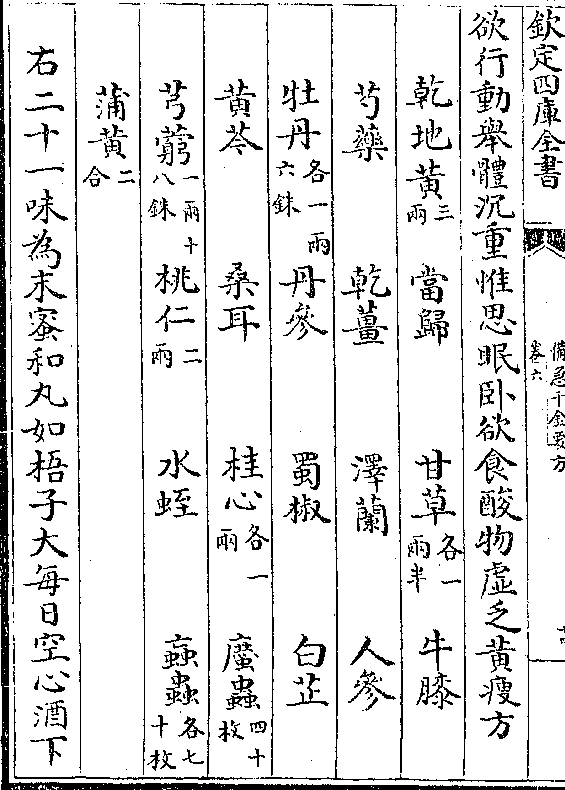 欽定四庫全書
備急千金要方
卷六
欲行動舉體沉重惟思眠卧欲食酸物虛乏黃瘦方
乾地黃三兩 當歸 甘草各一兩半 牛膝
芍藥 乾薑 澤蘭 人參
牡丹各一兩六銖 丹參 蜀椒 白芷
黃芩 桑耳 桂心各一兩 䗪蟲四十枚
芎藭一兩十八銖 桃仁二兩 水蛭 蝱蟲各七十枚
蒲黃二合
右二十一味為末蜜和丸如梧子大每日空心酒下